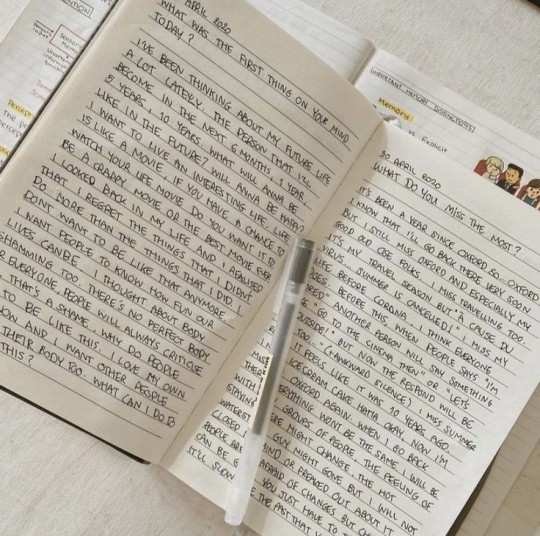 APRIL 2020
WHAT WAS THE FIRST THING ON YOUR MIND
TODAY?
I'VE BEEN THINKING ABOUT MY FUTURE LIFE
A LOT LATELY. THE PERSON THAT I'LL
BECOME IN THE NEXT 6 MONTHS, 1 YEAR,
5 YEARS, 10 YEARS. WHAT WILL ANNA BE
LIKE IN THE FUTURE? WILL ANNA BE
I WANT TO LIVE AN INTERESTING LIFE. LIFE
IS LIKE A MOVIE. IF YOU HAVE A CHANCE TO
WATCH YOUR LIFE MOVIE DO YOU WANT IT TO
BE A CRAPPY MOVIE OR THE BEST MOVIE EVER
I LOOKED BACK IN MY LIFE AND I REALISED
THAT I REGRET THE THINGS THAT I DIDNT
DO MORE THAN THE THINGS THAT I DID. I
DONT WANT TO BE LIKE THAT ANYMORE.
I WANT PEOPLE TO KNOW HOW FUN OUR
LIVES CAN BE. I THOUGHT ABOUT BODY
SHAMMING TOO. THERE'S NO PERFECT BODY
EVERYONE. PEOPLE WILL ALWAYS CRITICUE
THAT'S A SHAME. WHY DO PEOPLE
TO BE LIKE THIS. I LOVE MY OWN
AND I WANT OTHER PEOPLE
THEIR BODY TOO. WHAT CAN I DO
THIS?
IMPORTANT MEMORY DISTINCTIONS
Memory
Explicit
30 APRIL 2020
WHAT DO YOU MISS THE MOST?
IT'S BEEN A YEAR SINCE OXFORD SO.. OXFORD
I KNOW THAT I'LL GO BACK THERE VERY SOON
BUT I STILL MISS OXFORD AND ESPECIALLY MY
GOOD OLD COE FOLKS. I MISS TRAVELLING TOO.
IT'S MY TRAVEL SEASON BUT "A CAUSE DU
VIRUS, SUMMER IS CANCELLED!" I MISS MY
LIFE BEFORE CORONA. I THINK EVERYONE
DOES. BEFORE THIS, WHEN PEOPLE SAYS "I'M
ANOTHER PERSON WILL SAY SOMETHING
GO TO THE CINEMA THEN" OR "LETS
BUT NOW THE RESPOND WILL BE
(*AWKWARD SILENCE) I MISS SUMMER
IT FEELS LIKE IT WAS 10 YEARS AGO
ICECREAM CAKE HAHA OKAY, NOW I'M
OXFORD AGAIN. WHEN I GO BACK
EVERYTHING WONT BE THE SAME. I WILL BE
GROUPS OF PEOPLE. THE FEELING OF
MIGHT CHANGE, THE HOT
GUY MIGHT GONE BUT I WILL NOT
MIND OR FREAKED OUT ABOUT IT
AFRAID OF CHANGES, BUT
YOU JUST HAVE TO
THE PAST THAT